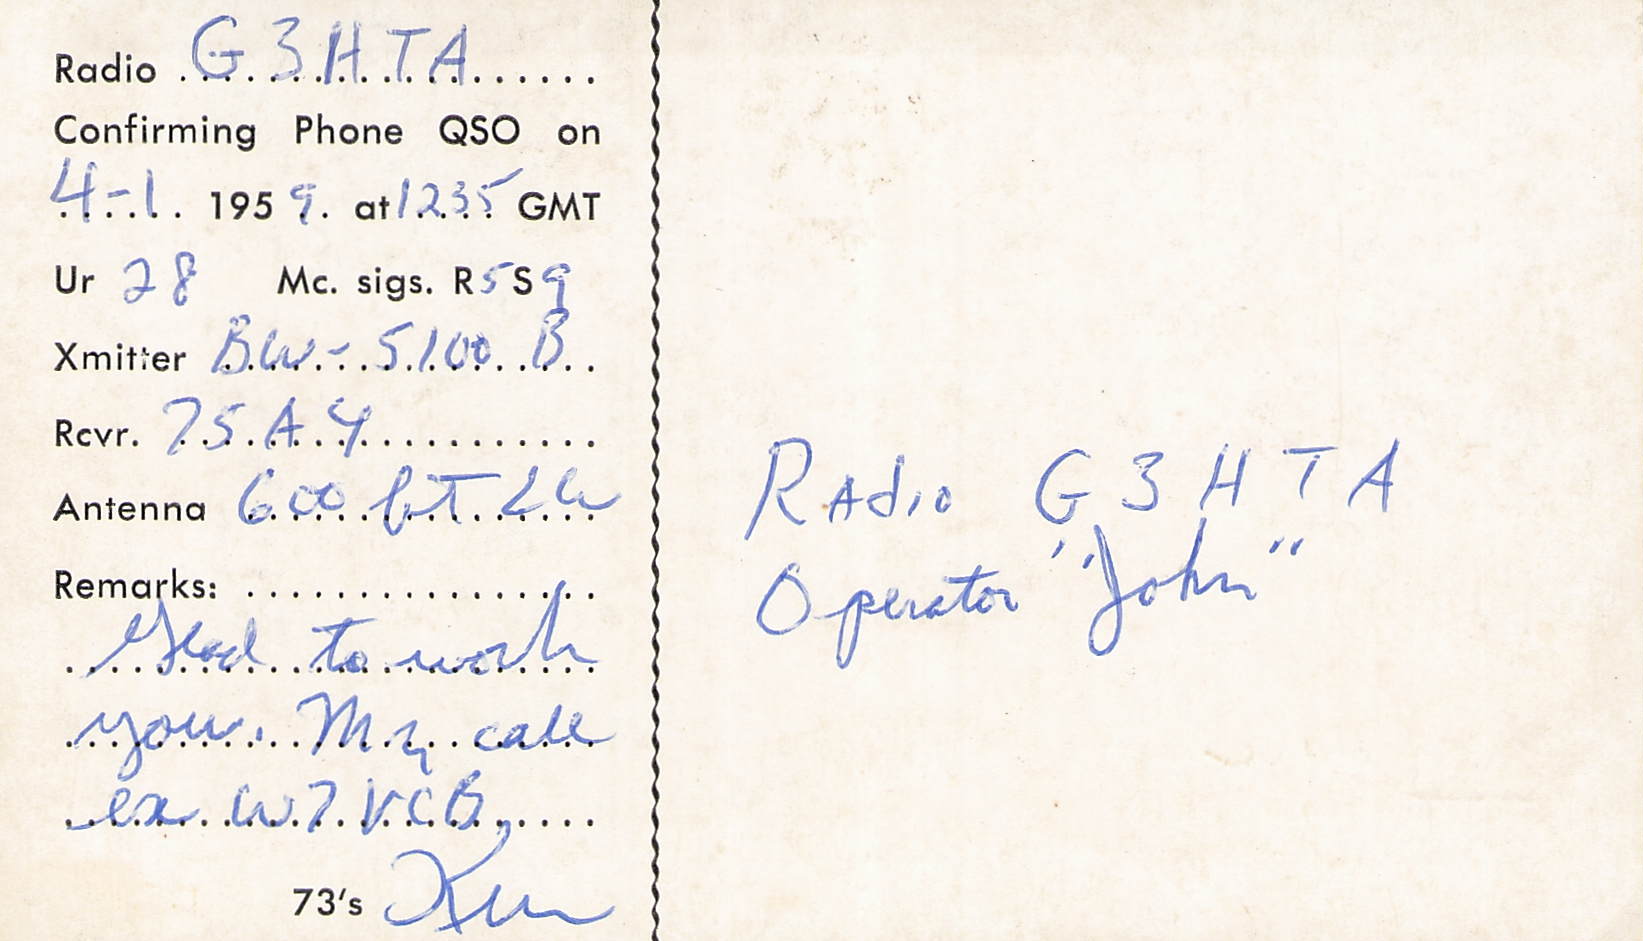 Radio G3HTA
Confirming Phone QSO on
4-1 1959 at 1235 GMT
Ur 28 Mc. sigs. R5 S9
Xmitter BW- 5100 B
Rcvr. 75A4
Antenna 600 ft LW
Remarks:
Glad to work
you. My call
ex W7VCB,
73's Ken
Radio G3HTA
Operator "John"